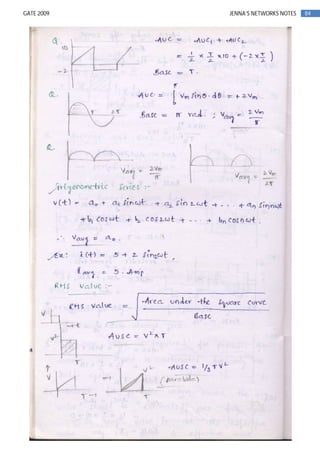 GATE 2009 JENNA'S NETWORKS NOTES 84
Q. AUC = AUC₁ + AUC₂
10
= 1/2 × T/2 × 10 + (-2 × T/2)
-2
Base = T.
Q. AUC = ∫₀^π Vm sinθ. dθ = + 2Vm
π 2π
Base = π rad. ; Vavg = 2Vm/π
Q.
Vavg = 2Vm/π
Vavg = 2Vm/2π
Trigonometric Series :-
v(t) = a₀ + a₁ sinωt + a₂ sin2ωt + . . . + aₙ sinnωt
+ b₁ cosωt + b₂ cos2ωt + . . . + bₙ cosnωt.
∴ Vavg = a₀.
Ex: i(t) = 5 + 2 sin5ωt.
Iavg = 5 Amp
RMS value :-
RMS value = √(Area under the square curve / Base)
V
→ t
V²
AUSC = V² × T
T
V
→ t
V²
AUSC = 1/3 T V²
(parabola)
T →
T